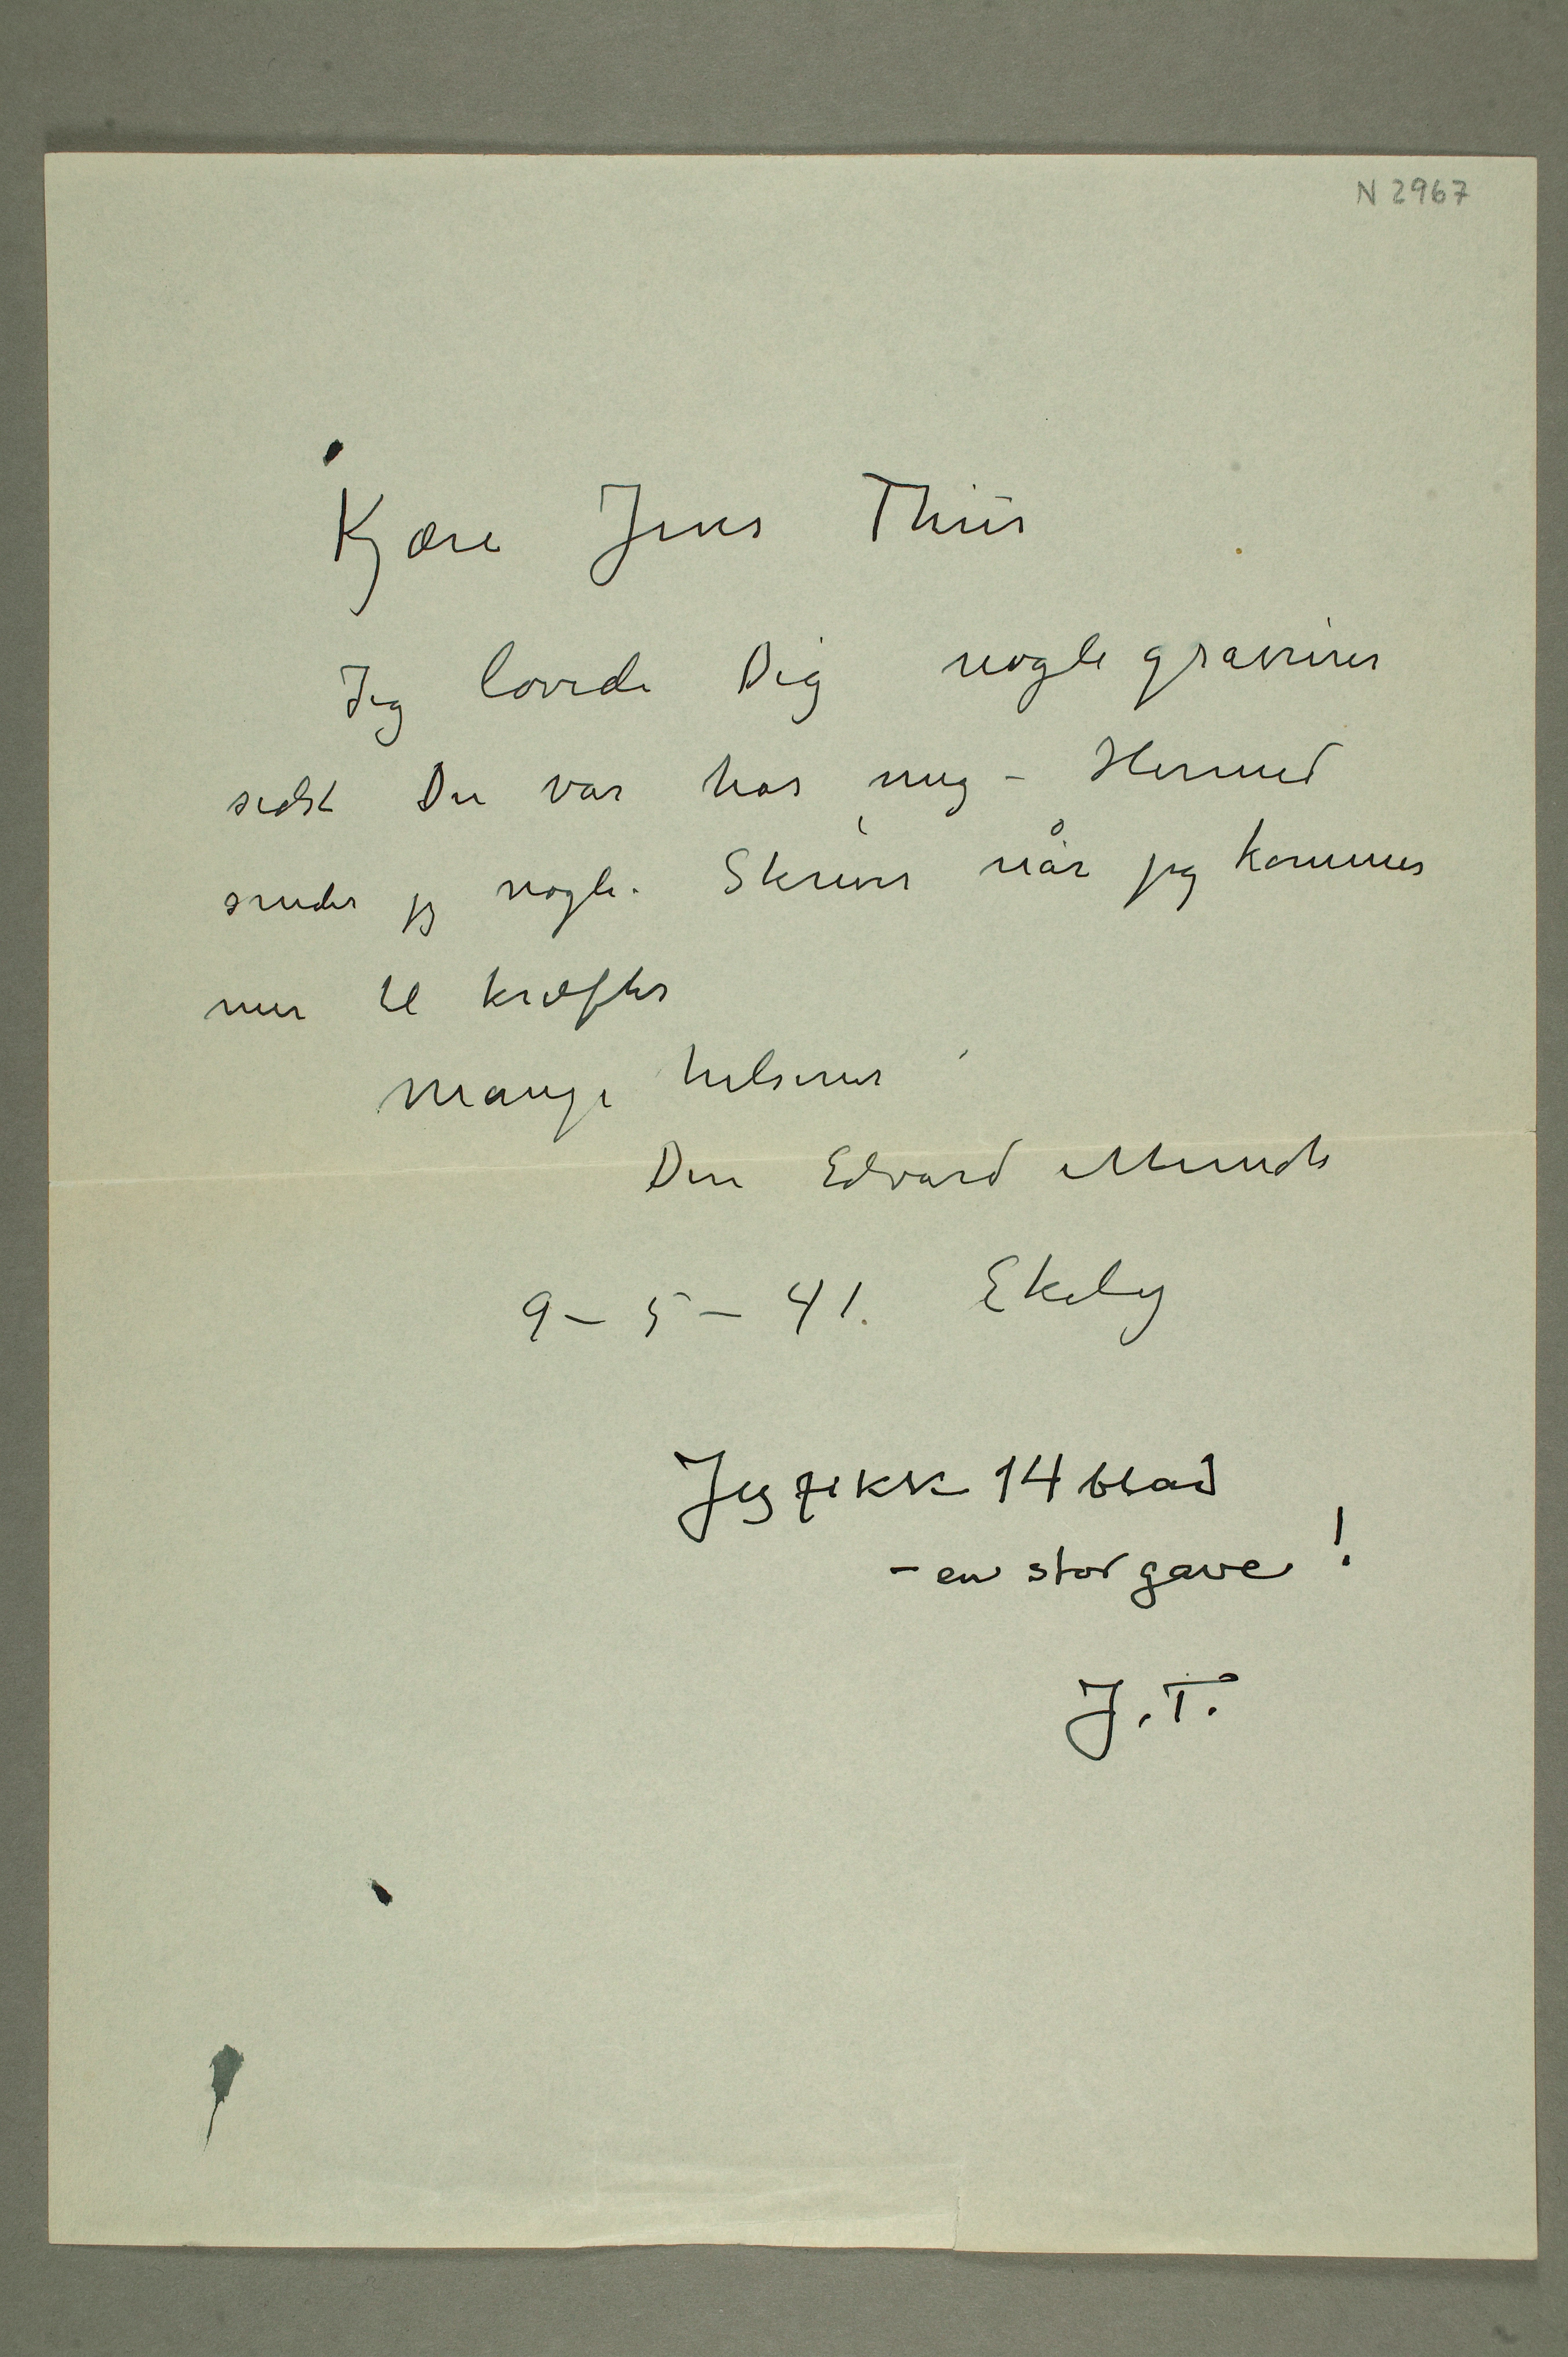 N 2967
Kjære Jens Thiis
Jeg lovede Dig nogle gravurer
sidst Du var hos mig – Hermed
sender jeg nogle. Skriver når jeg kommer
mer til kræfter
Mange hilsener
Din Edvard Munch
9–5–41. Ekely
Jeg fikk 14 blad
– en stor gave!
J.T.